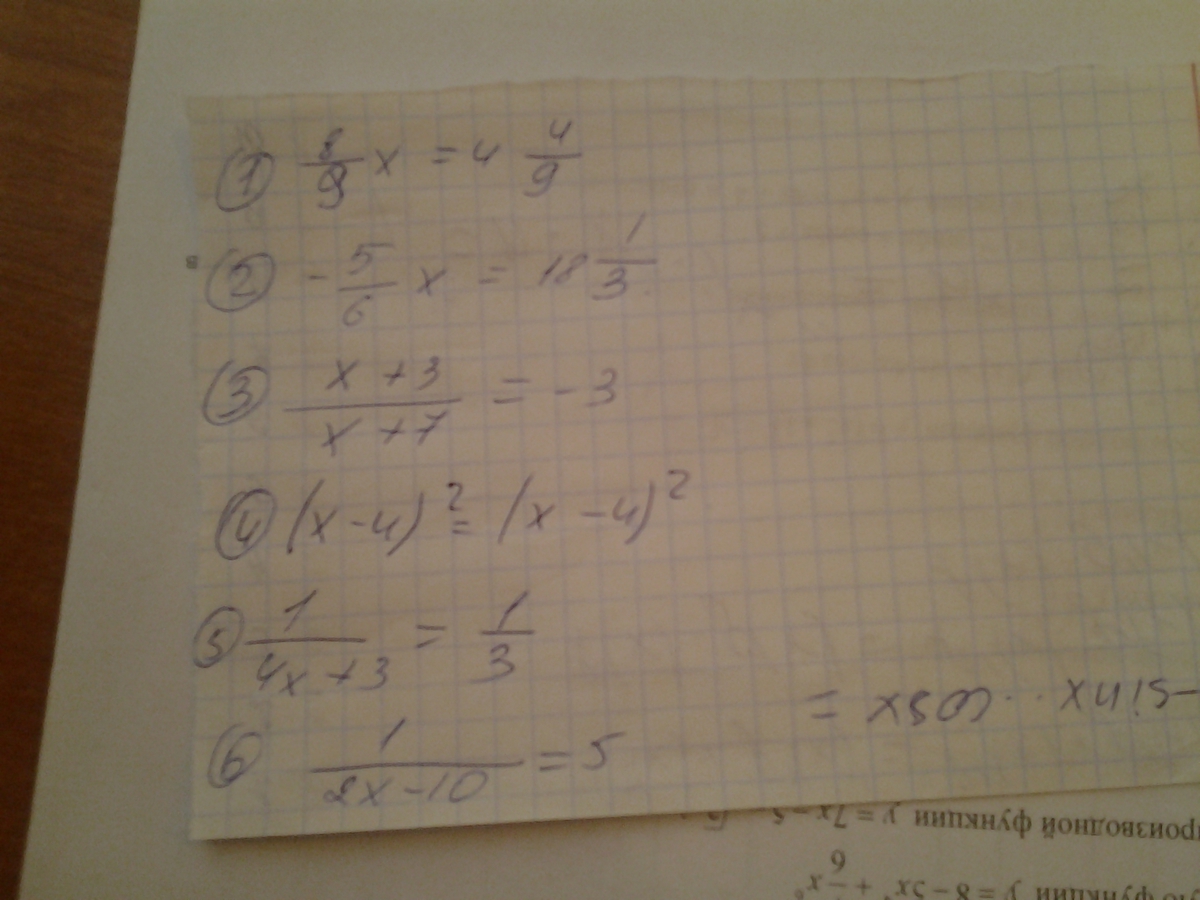 ① 8/9 x = 4 4/9
② - 5/6 x = 18 1/3
③ (x + 3)/(x + 7) = -3
④ (x-4)² = (x -4)²
⑤ 1/(4x+3) = 1/3
⑥ 1/(2x-10) = 5
-sinx · cosx =
в
роизводной функции y = 7x - 5
функции y = 8 - 5x + /6 x